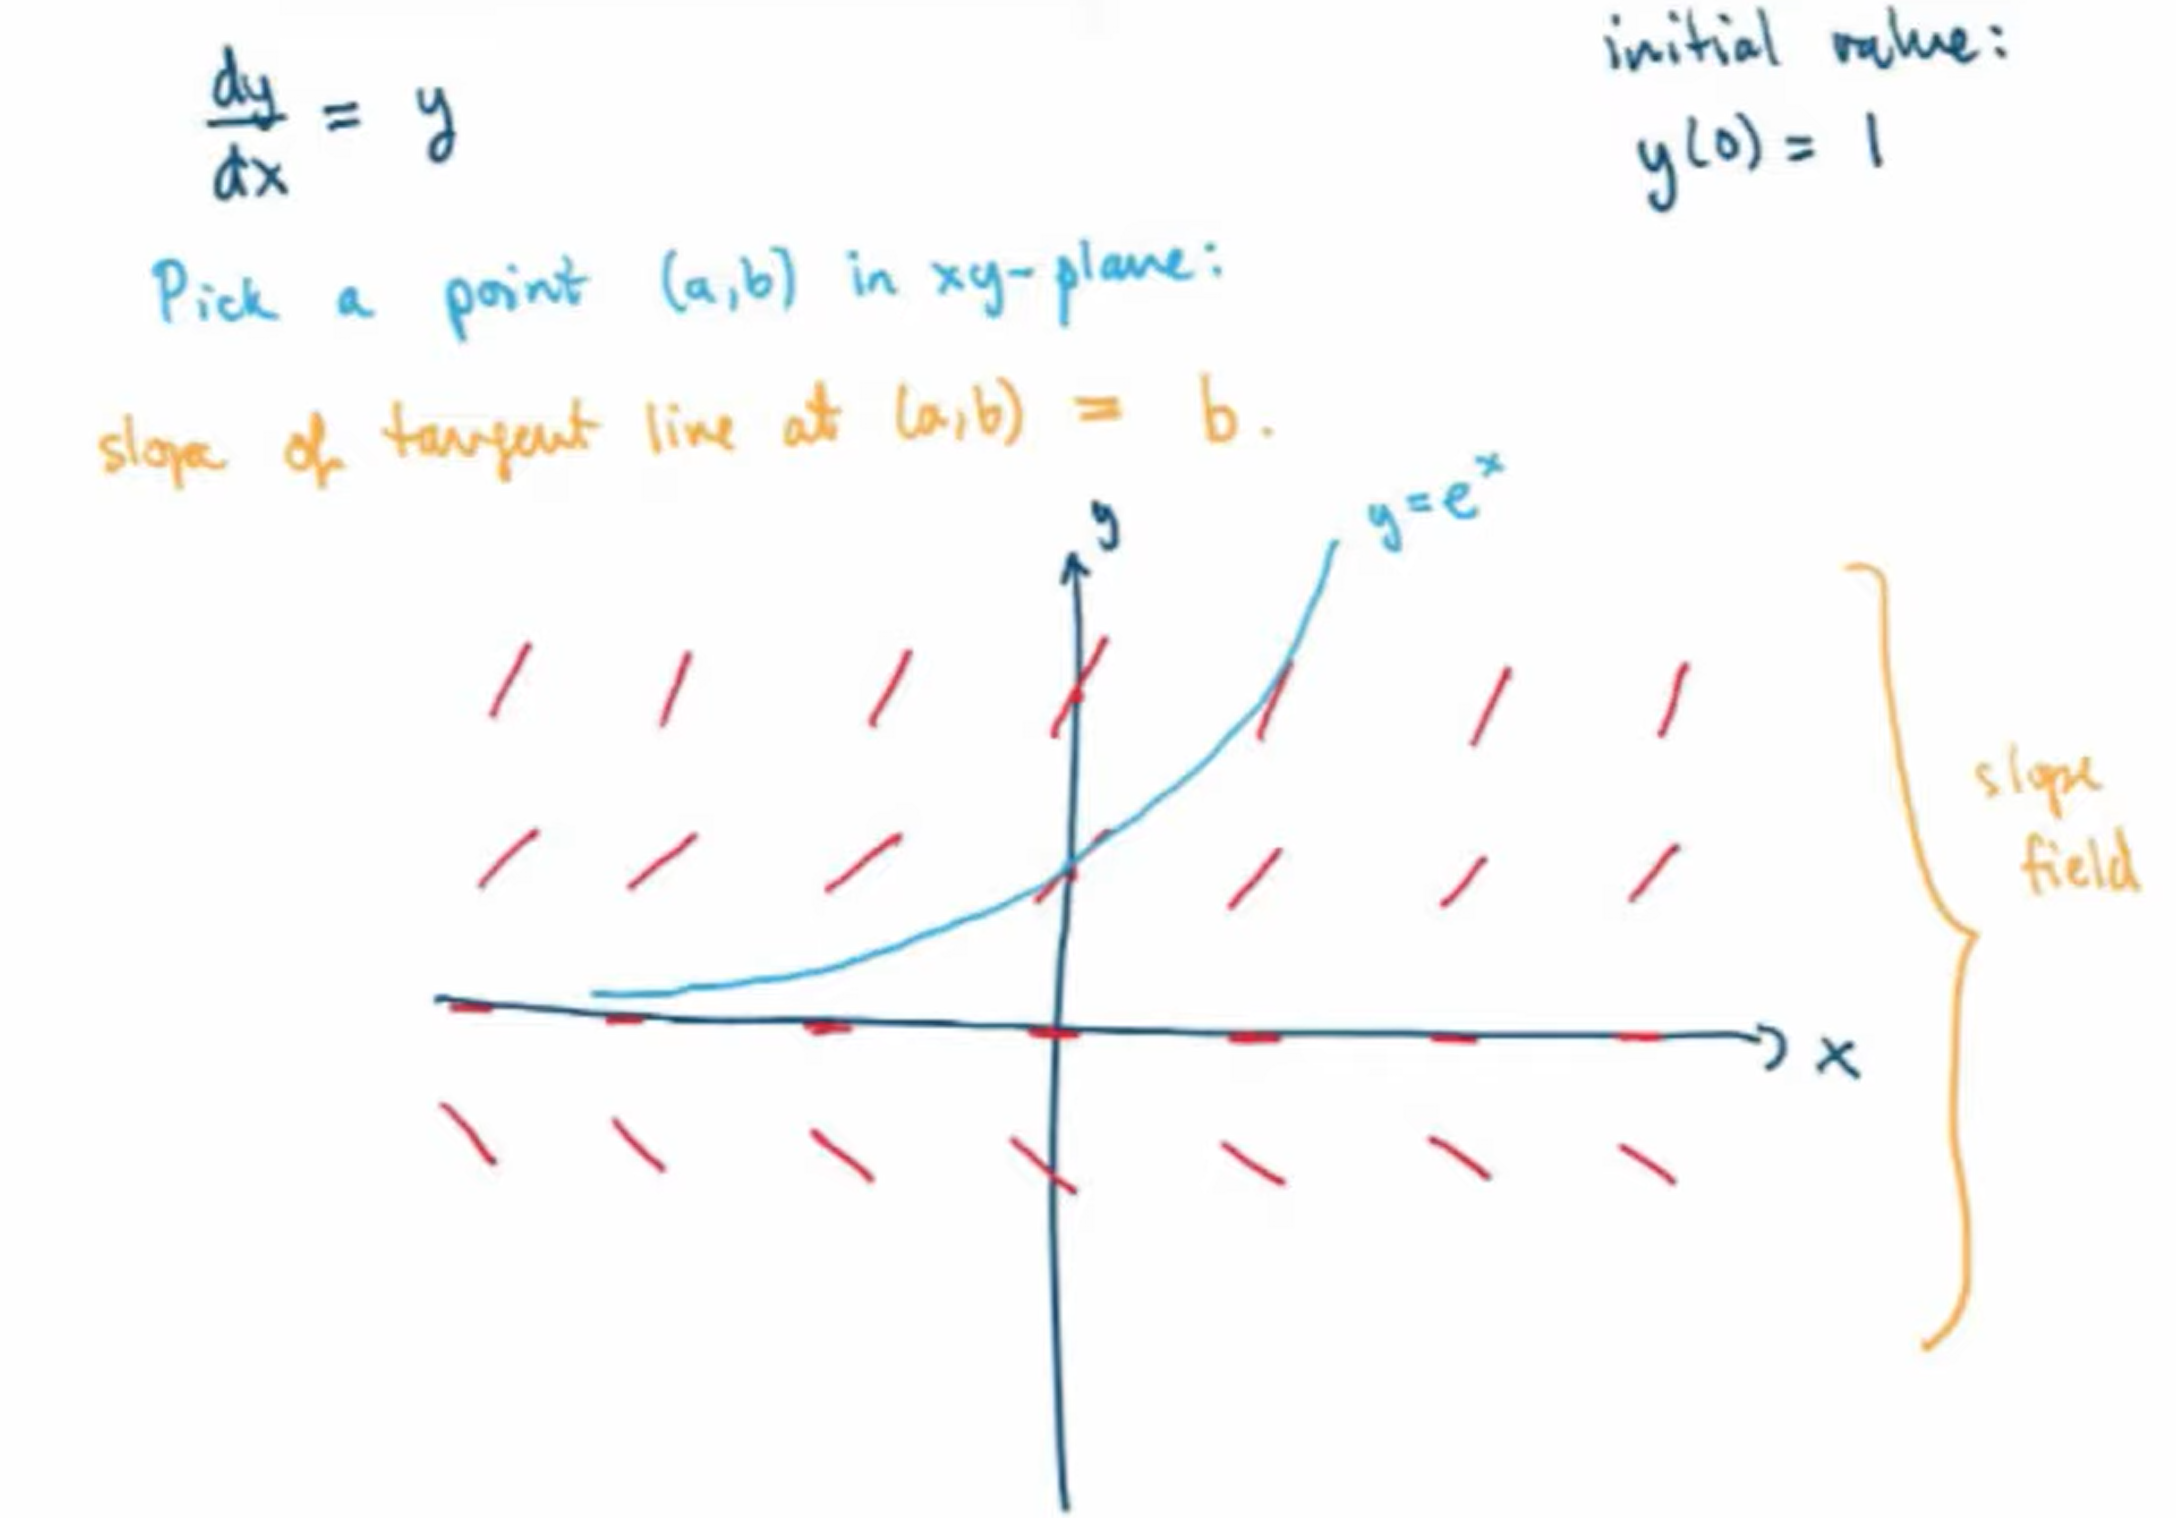 dy/dx = y
initial value:
y(0) = 1
Pick a point (a,b) in xy-plane:
slope of tangent line at (a,b) = b.
y
y=e^x
slope
field
x